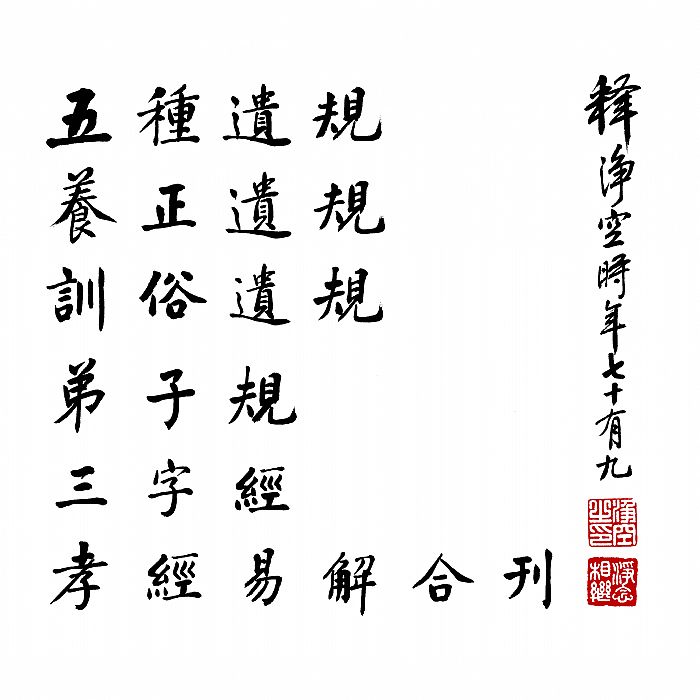 五種遺規
養正遺規
訓俗遺規
弟子規
三字經
孝經易解合刊
釋淨空時年七十有九
淨空之印
淨念相繼